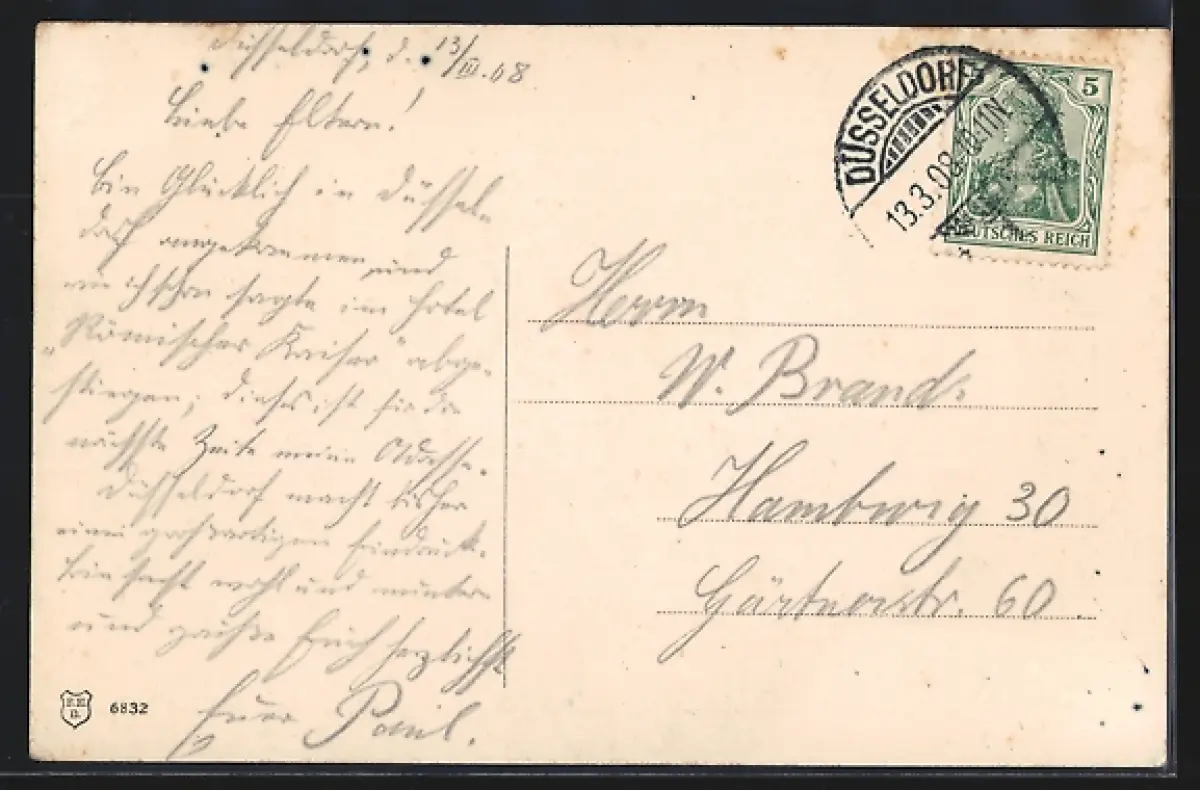 Düsseldorf, d. 13/III.08
Liebe Eltern!
Bin Glücklich in Düssel-
dorf angekommen und
wie ich schon sagte im Hotel
„Römischer Kaiser" abge-
stiegen; dieses ist für die
nächste Zeit meine Adresse.
Düsseldorf macht bisher
einen großartigen Eindruck.
Bin sehr wohl und munter
und grüße Euch herzlichst
Euer Paul.
6832
DÜSSELDORF
13.3.08 10-11N
5
DEUTSCHES REICH
Herrn
W. Brand
Hamburg 30
Gärtnerstr. 60